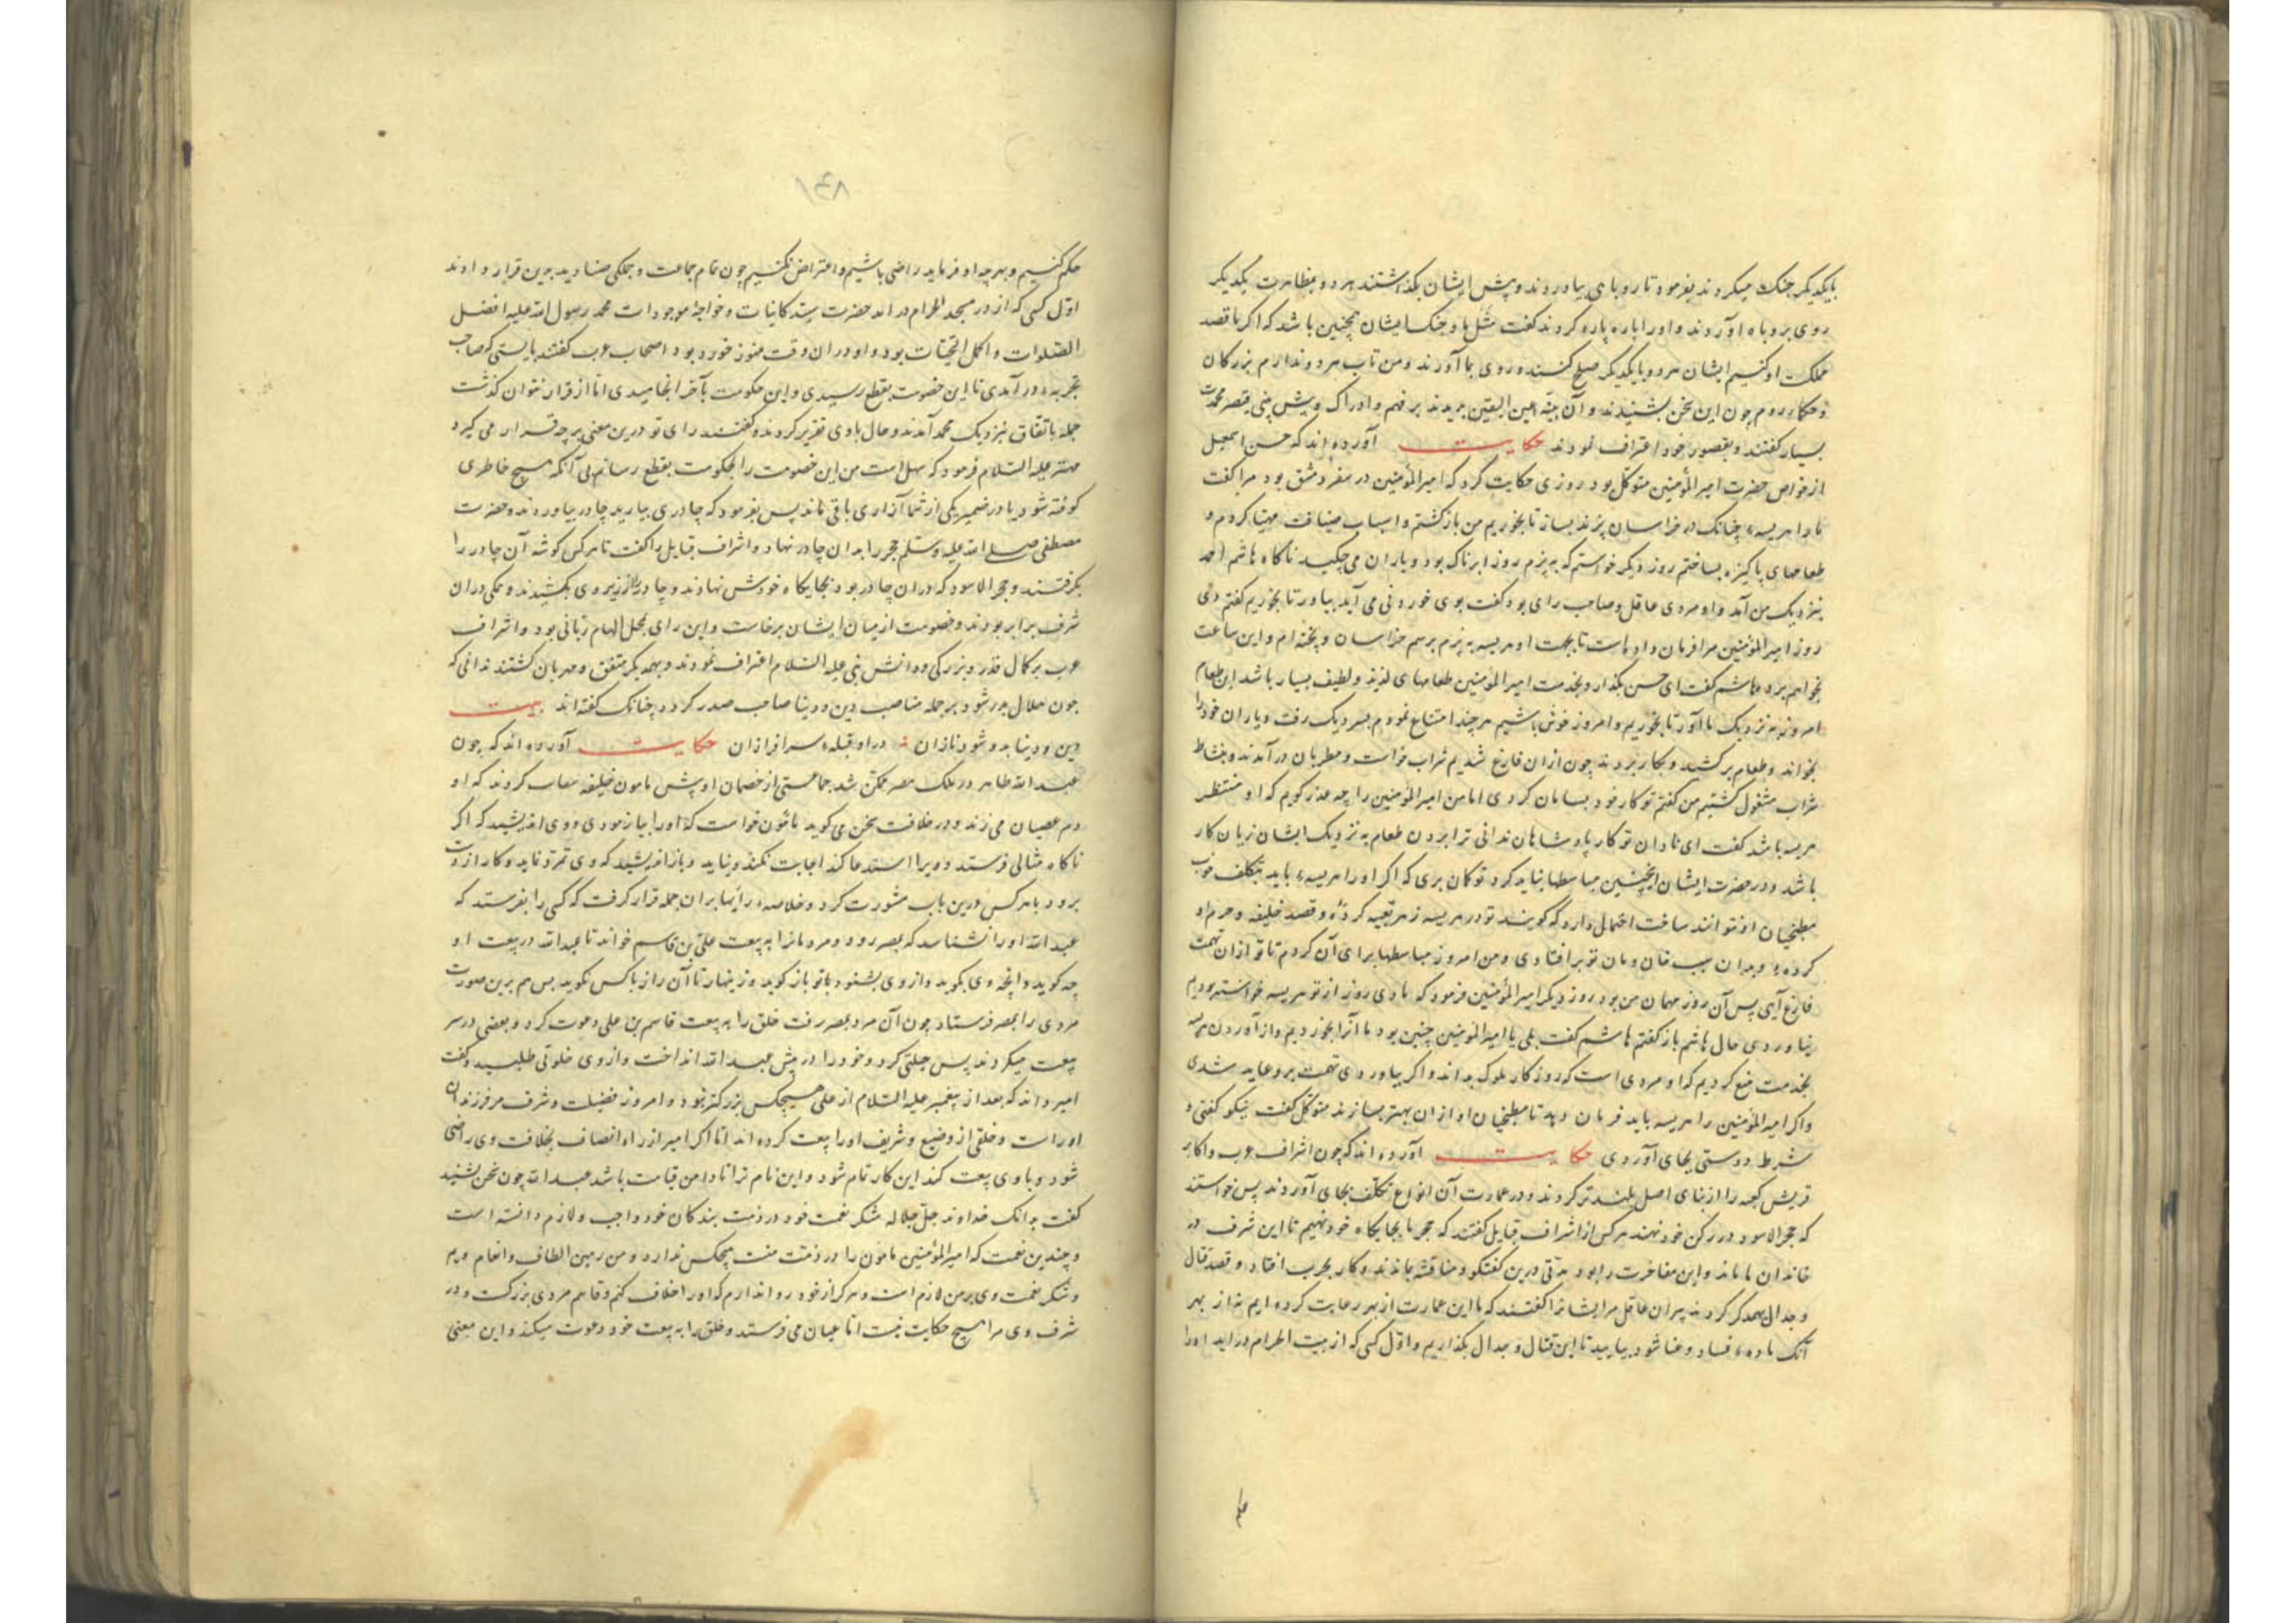 بایکدیکر جنک میکردند بفرمود تا روباهی بیاوردند و پیش ایشان بکذاشتند هر دو بمظاهرت یکدیکر
روی بروباه آوردند و اورا پاره پاره کردند کفت مثل ما و جنک ایشان همچنین باشد که اکر ما قصد
مملکت او کنیم ایشان هر دو با یکدیکر صلح کنند و روی بما آورند و من تاب هر دو ندارم بزرکان
و حکاء روم چون این سخن بشنیدند و آن بینه عین الیقین بدیدند بر فهم و ادراک و پیش بینی قیصر محمدت
بسیار کفتند و بقصور خود اعتراف نمودند حکایت آورده اند که حسن اسمعیل
از خواص حضرت امیر المؤمنین متوکل بود روزی حکایت کرد که امیر المؤمنین در سفر دمشق بود مرا کفت
مارا هریسهٔ چنانک در خراسان پزند بساز تا بخوریم من بازکشتم و اسباب ضیافت مهیا کردم و
طعامهای پاکیزه بساختم روز دیکر خواستم که بپزم روز ابرناک بود و باران می چکید ناکاه هاشم احمد
بنزدیک من آمد و او مردی عاقل و صاحب رای بود کفت بوی خوردنی می آید بیاور تا بخوریم کفتم دی
روز امیر المؤمنین مرا فرمان داده است تا بجهت او هریسه بپزم برسم خراسان و پخته ام و این ساعت
بخواهم برد هاشم کفت ای حسن بکذار و بخدمت امیر المؤمنین طعامهای لذیذ و لطیف بسیار باشد این طعام
امروز به نزدیک ما آور تا بخوریم و امروز خوش باشیم هر چند امتناع نمودم بسر دیک رفت و یاران خود را
بخواند و طعام برکشید و بکار بردند چون ازان فارغ شدیم شراب خواست و مطربان در آمدند و بنشاط
شراب مشغول کشتیم من کفتم تو کار خود بسامان کردی اما من امیر المؤمنین را چه عذر کویم که او منتظر
هریسه باشد کفت ای نادان تو کار پادشاهان ندانی ترا بردن طعام به نزدیک ایشان زیان کار
باشد و در حضرت ایشان اینچنین مباسطها نباید کرد تو کمان بری که اکر اورا هریسهٔ باید بتکلف خوب
مطبخیان او نتوانند ساخت احتمال دارد که کویند تو در هریسه زهر تعبیه کردهٔ و قصد خلیفه و حرم او
کردهٔ و بدان سبب خان و مان تو برافتادی و من امروز مباسطها برای آن کردم تا تو ازان تهمت
فارغ آیی پس آن روز مهمان من بود روز دیکر امیر المؤمنین فرمود که ما دی روز از تو هریسه خواسته بودیم
نیاوردی حال هاشم باز کفتم هاشم کفت بلی یا امیر المؤمنین چنین بود ما آنرا بخوردیم و از آوردن هریسه
بخدمت منع کردیم که او مردی است که روزکار ملوک بداند و اکر بیاوردی تهمت برو عاید شدی
و اکر امیر المؤمنین را هریسه باید فرمان دهد تا مطبخیان او ازان بهتر بسازند متوکل کفت نیکو کفتی و
شرط دوستی بجای آوردی حکایت آورده اند که چون اشراف عرب و اکابر
قریش کعبه را از بنای اصل بلندتر کردند و در عمارت آن انواع تکلف بجای آوردند پس خواستند
که حجر الاسود در رکن خود نهند هر کس از اشراف قبایل کفتند که حجر ما بجایکاه خود نهیم تا این شرف در
خاندان ما ماند و این مفاخرت را بود مدتی درین کفتکو و مناقشه بماندند و کار بحرب افتاد و قصد قتال
و جدال یکدیکر کردند پیران عاقل مر ایشانرا کفتند که ما این عمارت از بهر رعایت کرده ایم نه از بهر
آنک مادهٔ فساد و عنا شود بیایید تا این قتال و جدال بکذاریم و اول کسی که از بیت الحرام در آید اورا
حکم
حکم کنیم و بهر چه او فرماید راضی باشیم و اعتراض نکنیم چون تمام جماعت و جملکی صنادید بدین قرار دادند
اول کسی که از در مسجد الحرام در آمد حضرت سید کاینات و خواجهٔ موجودات محمد رسول الله علیه افضل
الصلوات و اکمل التحیات بود و او دران وقت هنوز خورد بود اصحاب عرب کفتند بایستی که صاحب
تجربهٔ در آمدی تا این خصومت بقطع رسیدی و این حکومت بآخر انجامیدی اما از قرار نتوان کذشت
جمله باتفاق بنزدیک محمد آمدند و حال با وی تقریر کردند و کفتند رای تو درین معنی بر چه قرار می کیرد
مهتر علیه السلام فرمود که سهل است من این خصومت را بحکومت بقطع رسانم بی آنکه هیچ خاطری
کوفته شود یا در ضمیر یکی از شما آزاری باقی ماند پس بفرمود که چادری بیارید چادر بیاوردند و حضرت
مصطفی صلی الله علیه و سلم حجر را بدان چادر نهاد و اشراف قبایل را کفت تا هر کس کوشهٔ آن چادر را
بکرفتند و حجر الاسود که دران چادر بود بجایکاه خودش نهادند و چادر را از زیر وی بکشیدند و همکی دران
شرف برابر بودند و خصومت از میان ایشان برخاست و این رای محل الهام ربانی بود و اشراف
عرب بر کمال قدر و بزرکی و دانش نبی علیه السلام اعتراف نمودند و بهمدیکر متفق و مهربان کشتند ندانی که
چون هلال بدر شود بر جمله مناصب دین و دنیا صاحب صدر کردد چنانک کفته اند بیت
دین و دنیا بدو شود نازان در او قبلهٔ سرافرازان حکایت آورده اند که چون
عبد الله طاهر در ملک مصر متمکن شد جماعتی از خصمان او پیش مامون خلیفه سعایت کردند که او
دم عصیان می زند و در خلافت سخن می کوید مامون خواست که اورا بیازمودی و وی اندیشید که اکر
ناکاه مثالی فرستد و ویرا استدعا کند اجابت نکند و نیاید و باز اندیشید که وی تمرد نماید و کار از دست
برود با هر کس درین باب مشورت کرد و خلاصهٔ رایها بران جمله قرار کرفت که کسی را بفرستد که
عبد الله اورا نشناسد که بمصر رود و مردمانرا به بیعت علی بن قاسم خواند تا عبد الله در بیعت او
چه کوید و آنچه وی بکوید و از وی بشنود با تو باز کوید و زینهار تا آن راز با کس نکوید پس هم برین صورت
مردی را بمصر فرستاد چون آن مرد بمصر رفت خلق را به بیعت قاسم بن علی دعوت کرد و بعضی در سر
بیعت میکردند پس حیلتی کرد و خود را در پیش عبد الله انداخت و از وی خلوتی طلبید و کفت
امیر داند که بعد از پیغمبر علیه السلام از علی هیچکس بزرکتر نبود و امروز فضیلت و شرف مر فرزندان
اوراست و خلقی از وضیع و شریف اورا بیعت کرده اند اما اکر امیر از راه انصاف بخلافت وی راضی
شود و با وی بیعت کند این کار تمام شود و این نام ترا تا دامن قیامت باشد عبد الله چون سخن بشنید
کفت بدانک خداوند جل جلاله شکر نعمت خود در ذمت بندکان خود واجب و لازم دانسته است
و چندین نعمت که امیر المؤمنین مامون را در ذمت منت هیچکس ندارد و من رهین الطاف و انعام ویم
و شکر نعمت وی بر من لازم است و هرکز از خود روا ندارم که اورا خلاف کنم و قاسم مردی بزرکست و در
شرف وی مرا هیچ حکایت نیست اما عیان می فرستد و خلق را به بیعت خود دعوت میکند و این معنی